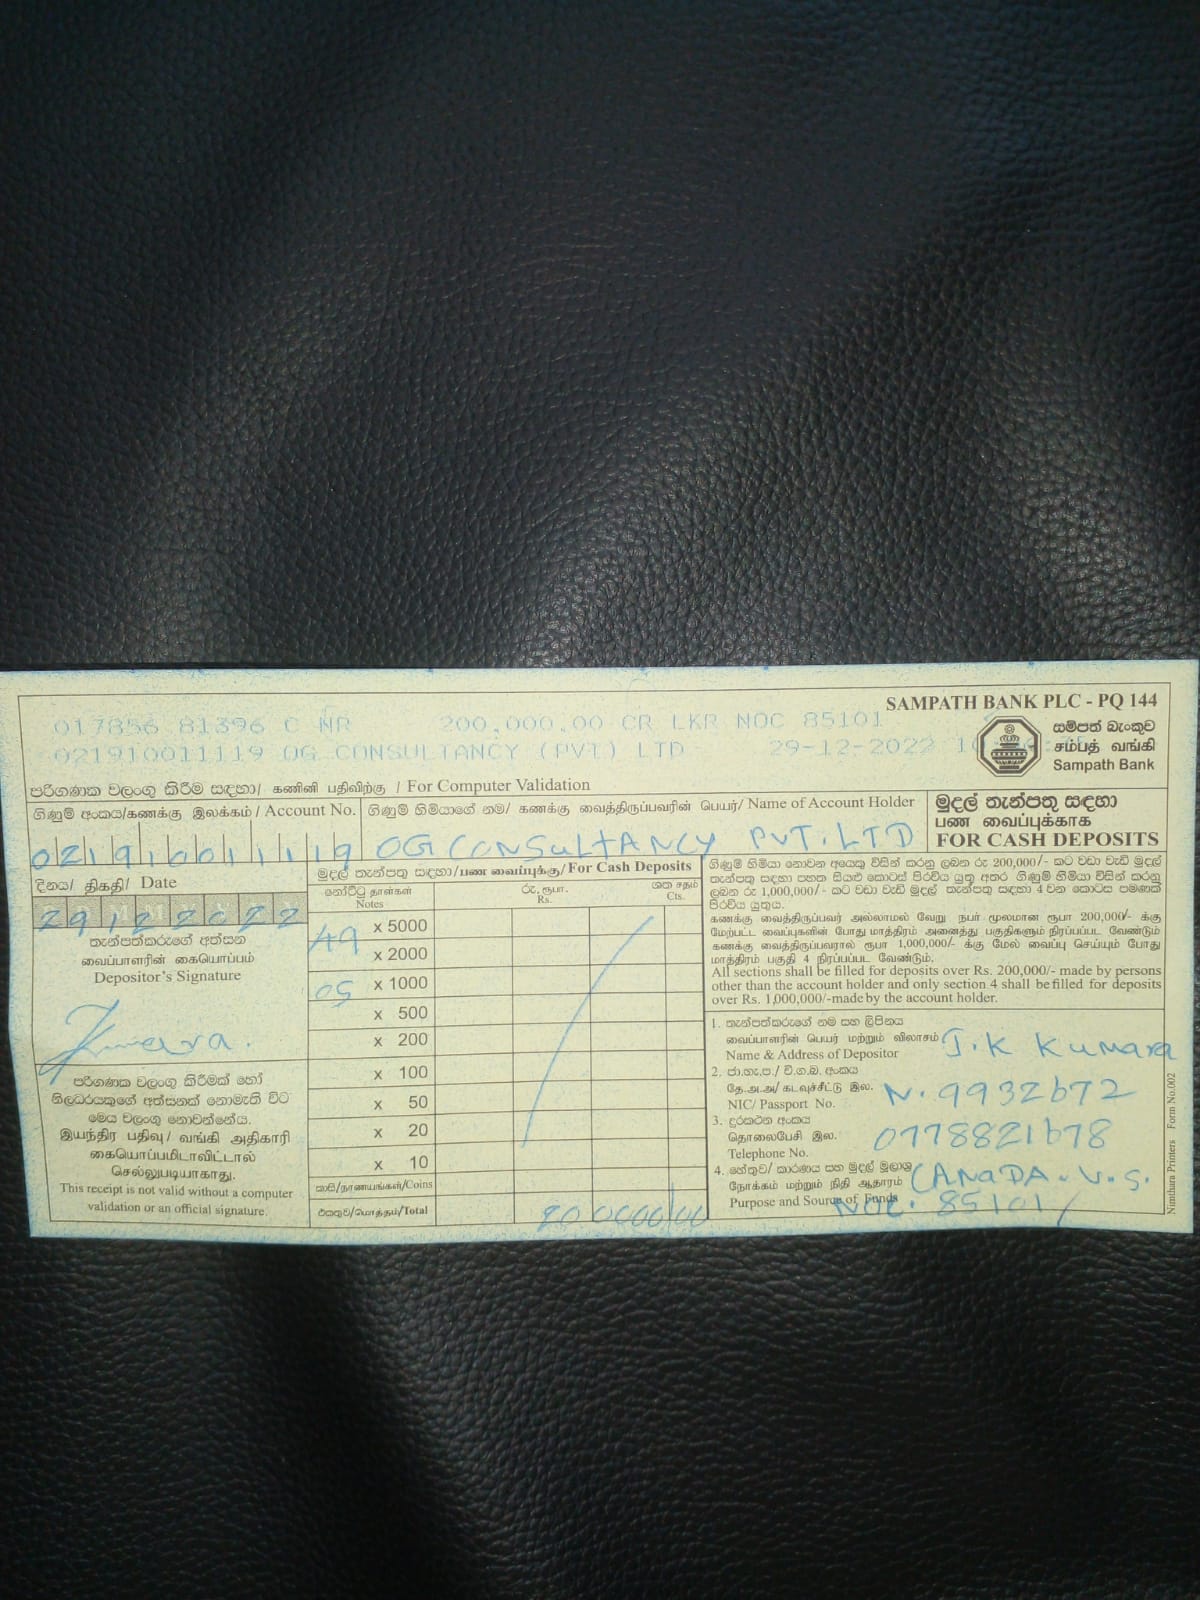 SAMPATH BANK PLC - PQ 144
017856 81396 C NR 200,000.00 CR LKR NOC 85101
021910011119 OG CONSULTANCY (PVT) LTD 29-12-2022
සම්පත් බැංකුව
சம்பத் வங்கி
Sampath Bank
පරිගණක වලංගු කිරීම සඳහා/ கணினி பதிவிற்கு / For Computer Validation
ගිණුම් අංකය/கணக்கு இலக்கம் / Account No.
021910011119
ගිණුම් හිමියාගේ නම/ கணக்கு வைத்திருப்பவரின் பெயர்/ Name of Account Holder
OG CONSULTANCY PVT. LTD
මුදල් තැන්පතු සඳහා
பண வைப்புக்காக
FOR CASH DEPOSITS
දිනය/ திகதி/ Date
29 12 2022
තැන්පත්කරුගේ අත්සන
வைப்பாளரின் கையொப்பம்
Depositor's Signature
Kumara.
පරිගණක වලංගු කිරීමක් හෝ
නිලධරයකුගේ අත්සනක් නොමැති විට
මෙය වලංගු නොවන්නේය.
இயந்திர பதிவு/ வங்கி அதிகாரி
கையொப்பமிடாவிட்டால்
செல்லுபடியாகாது.
This receipt is not valid without a computer
validation or an official signature.
මුදල් තැන්පතු සඳහා/பண வைப்புக்காக/For Cash Deposits
නෝට්ටු தாள்கள்
Notes
රු. ரூபா.
Rs.
ශත சதம்
Cts.
x 5000
x 2000
05 x 1000
x 500
x 200
x 100
x 50
x 20
x 10
කාසි/நாணயங்கள்/Coins
එකතුව/மொத்தம்/Total
ගිණුම් හිමියා නොවන අයෙකු විසින් කරනු ලබන රු 200,000/- කට වඩා වැඩි මුදල්
තැන්පතු සඳහා පහත සියළු කොටස් පිරවිය යුතු අතර ගිණුම් හිමියා විසින් කරනු
ලබන රු 1,000,000/- කට වඩා වැඩි මුදල් තැන්පතු සඳහා 4 වන කොටස පමණක්
පිරවිය යුතුය.
கணக்கு வைத்திருப்பவர் அல்லாமல் வேறு நபர் மூலமான ரூபா 200,000/- க்கு
மேற்பட்ட வைப்புகளின் போது மாத்திரம் அனைத்து பகுதிகளும் நிரப்பப்பட வேண்டும்
கணக்கு வைத்திருப்பவரால் ரூபா 1,000,000/- க்கு மேல் வைப்பு செய்யும் போது
மாத்திரம் பகுதி 4 நிரப்பப்பட வேண்டும்.
All sections shall be filled for deposits over Rs. 200,000/- made by persons
other than the account holder and only section 4 shall be filled for deposits
over Rs. 1,000,000/-made by the account holder.
1. තැන්පත්කරුගේ නම සහ ලිපිනය
வைப்பாளரின் பெயர் மற்றும் விலாசம்
Name & Address of Depositor
J.K Kumara
2. ජා.හැ.ප./ වි.ග.බ. අංකය
தே.அ.அ/ கடவுச்சீட்டு இல.
NIC/ Passport No.
3. දුරකථන අංකය
தொலைபேசி இல.
Telephone No.
4. හේතුව/ කාරණය සහ මුදල් මූලාශ්‍ර
நோக்கம் மற்றும் நிதி ஆதாரம்
Purpose and Source of Funds
CANADA. V.S.
NOC. 85101/
Nimhara Printers Form No.002